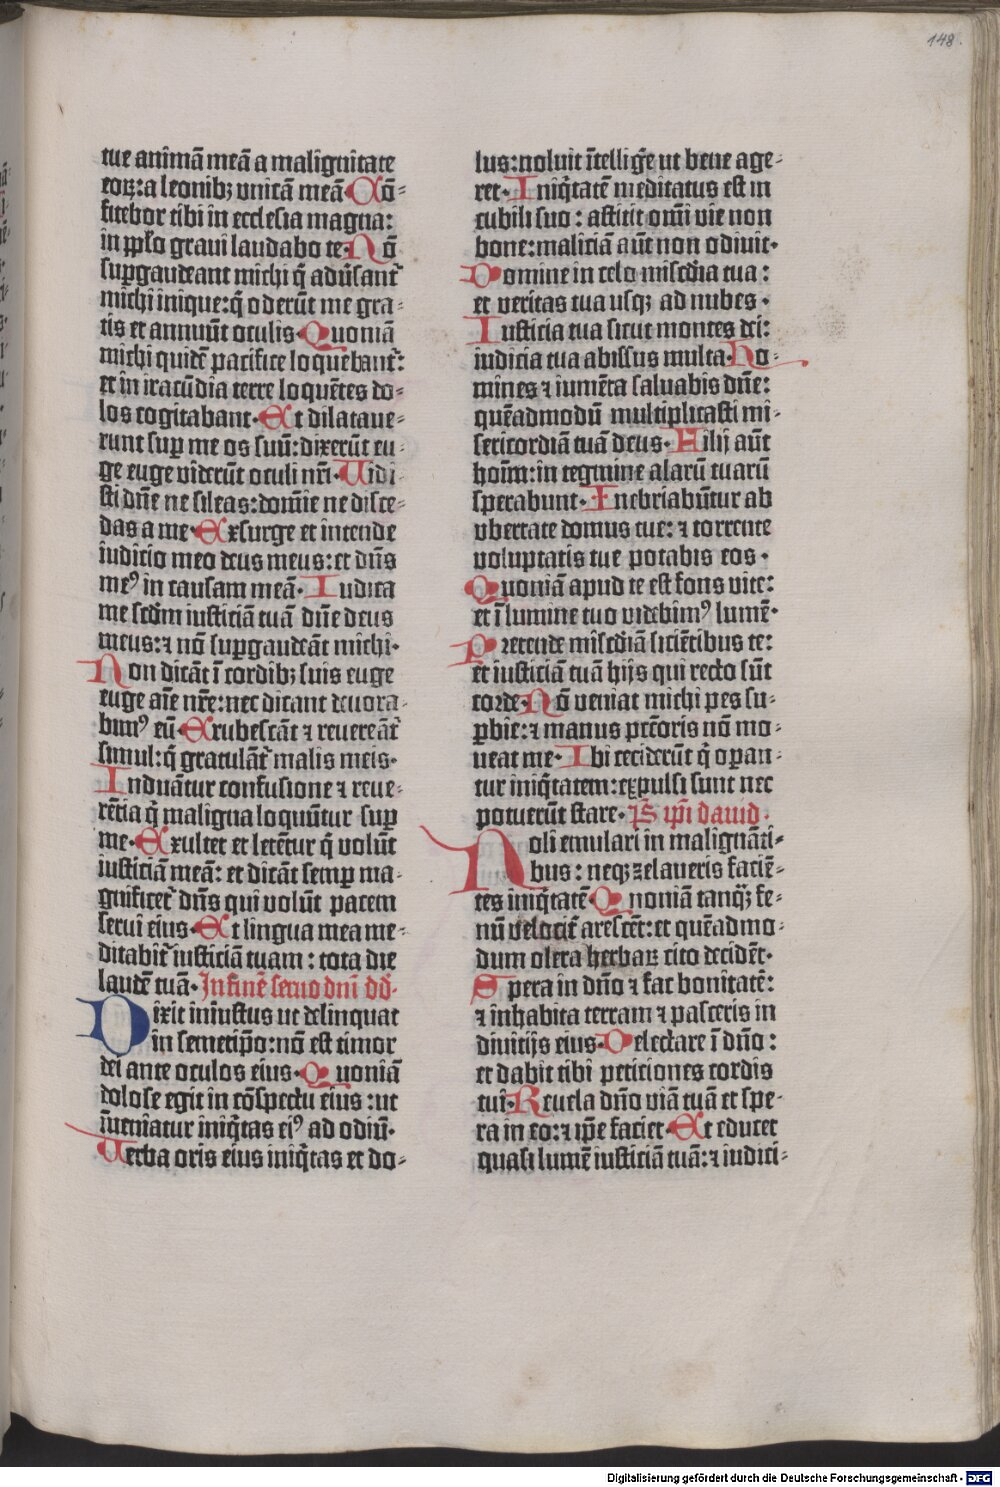 148.
tue animā meā a malignitate
eoꝝ: a leonibꝫ vnicā meā. Cō⸗
fitebor tibi in ecclesia magna:
in pp̄lo graui laudabo te. Nō
suꝑgaudeant michi q̄ adūsant᷑
michi inique: q̄ oderūt me gra⸗
tis et annuūt oculis. Quoniā
michi quidē pacifice loquebant᷑:
et in iracūdia terre loquētes do⸗
los cogitabant. Et dilataue⸗
runt suꝑ me os suū: dixerūt eu⸗
ge euge viderūt oculi nr̄i. Vidi⸗
sti dn̄e ne sileas: domīe ne disce⸗
das a me. Exsurge et intende
iudicio meo deus meus: et dn̄s
meꝰ in causam meā. Iudica
me scd̄m iusticiā tuā dn̄e deus
meus: ⁊ nō suꝑgaudeāt michi.
Non dicāt ī cordibꝫ suis euge
euge aīe nr̄e: nec dicant deuora⸗
bimꝰ eū. Erubescāt ⁊ reuereāt᷑
simul: q̄ gratulāt᷑ malis meis.
Induātur confusione ⁊ reue⸗
rētia q̄ maligna loquūtur suꝑ
me. Exultet et letētur q̄ volūt
iusticiā meā: et dicāt semꝑ ma⸗
gnificet᷑ dn̄s qui volūt pacem
serui eius. Et lingua mea me⸗
ditabit᷑ iusticiā tuam: tota die
laudē tuā. In finē seruo dn̄i dd̄.
Dixit iniustus ut delinquat
in semetip̄o: nō est timor
dei ante oculos eius. Quoniā
dolose egit in cōspectu eius: ut
īueniatur iniq̄tas eiꝰ ad odiū.
Verba oris eius iniq̄tas et do⸗
lus: noluit ītelliḡe ut bene age⸗
ret. Iniq̄tatē meditatus est in
cubili suo: astitit om̄i vie non
bone: maliciā aūt non odiuit.
Domine in celo misc̄dia tua:
et veritas tua usqꝫ ad nubes.
Iusticia tua sicut montes dei:
iudicia tua abissus multa. Ho⸗
mines ⁊ iumēta saluabis dn̄e:
quēadmodū multiplicasti mi⸗
sericordiā tuā deus. Filij aūt
hoīm: in tegmine alarū tuarū
sperabunt. Inebriabūtur ab
vbertate domus tue: ⁊ torrente
voluptatis tue potabis eos.
Quoniā apud te est fons vite:
et ī lumine tuo videbimꝰ lumē.
Pretende misc̄diā sciētibus te:
et iusticiā tuā hijs qui recto sūt
corde. Nō veniat michi pes su⸗
ꝑbie: ⁊ manus pctōris nō mo⸗
ueat me. Ibi ceciderūt q̄ oꝑan⸗
tur iniq̄tatem: expulsi sunt nec
potuerūt stare. Ps̄ ip̄i dauid.
Noli emulari in malignāti⸗
bus: neqꝫ zelaueris faciē⸗
tes iniq̄tatē. Quoniā tanqꝫ̄ fe⸗
nū velocit᷑ arescēt: et quēadmo⸗
dum olera herbaꝝ cito decidēt.
Spera in dn̄o ⁊ fac bonitatē:
⁊ inhabita terram ⁊ pasceris in
diuitijs eius. Delectare ī dn̄o:
et dabit tibi peticiones cordis
tui. Reuela dn̄o viā tuā et spe⸗
ra in eo: ⁊ ip̄e faciet. Et educet
quasi lumē iusticiā tuā: ⁊ iudici⸗
Digitalisierung gefördert durch die Deutsche Forschungsgemeinschaft - DFG